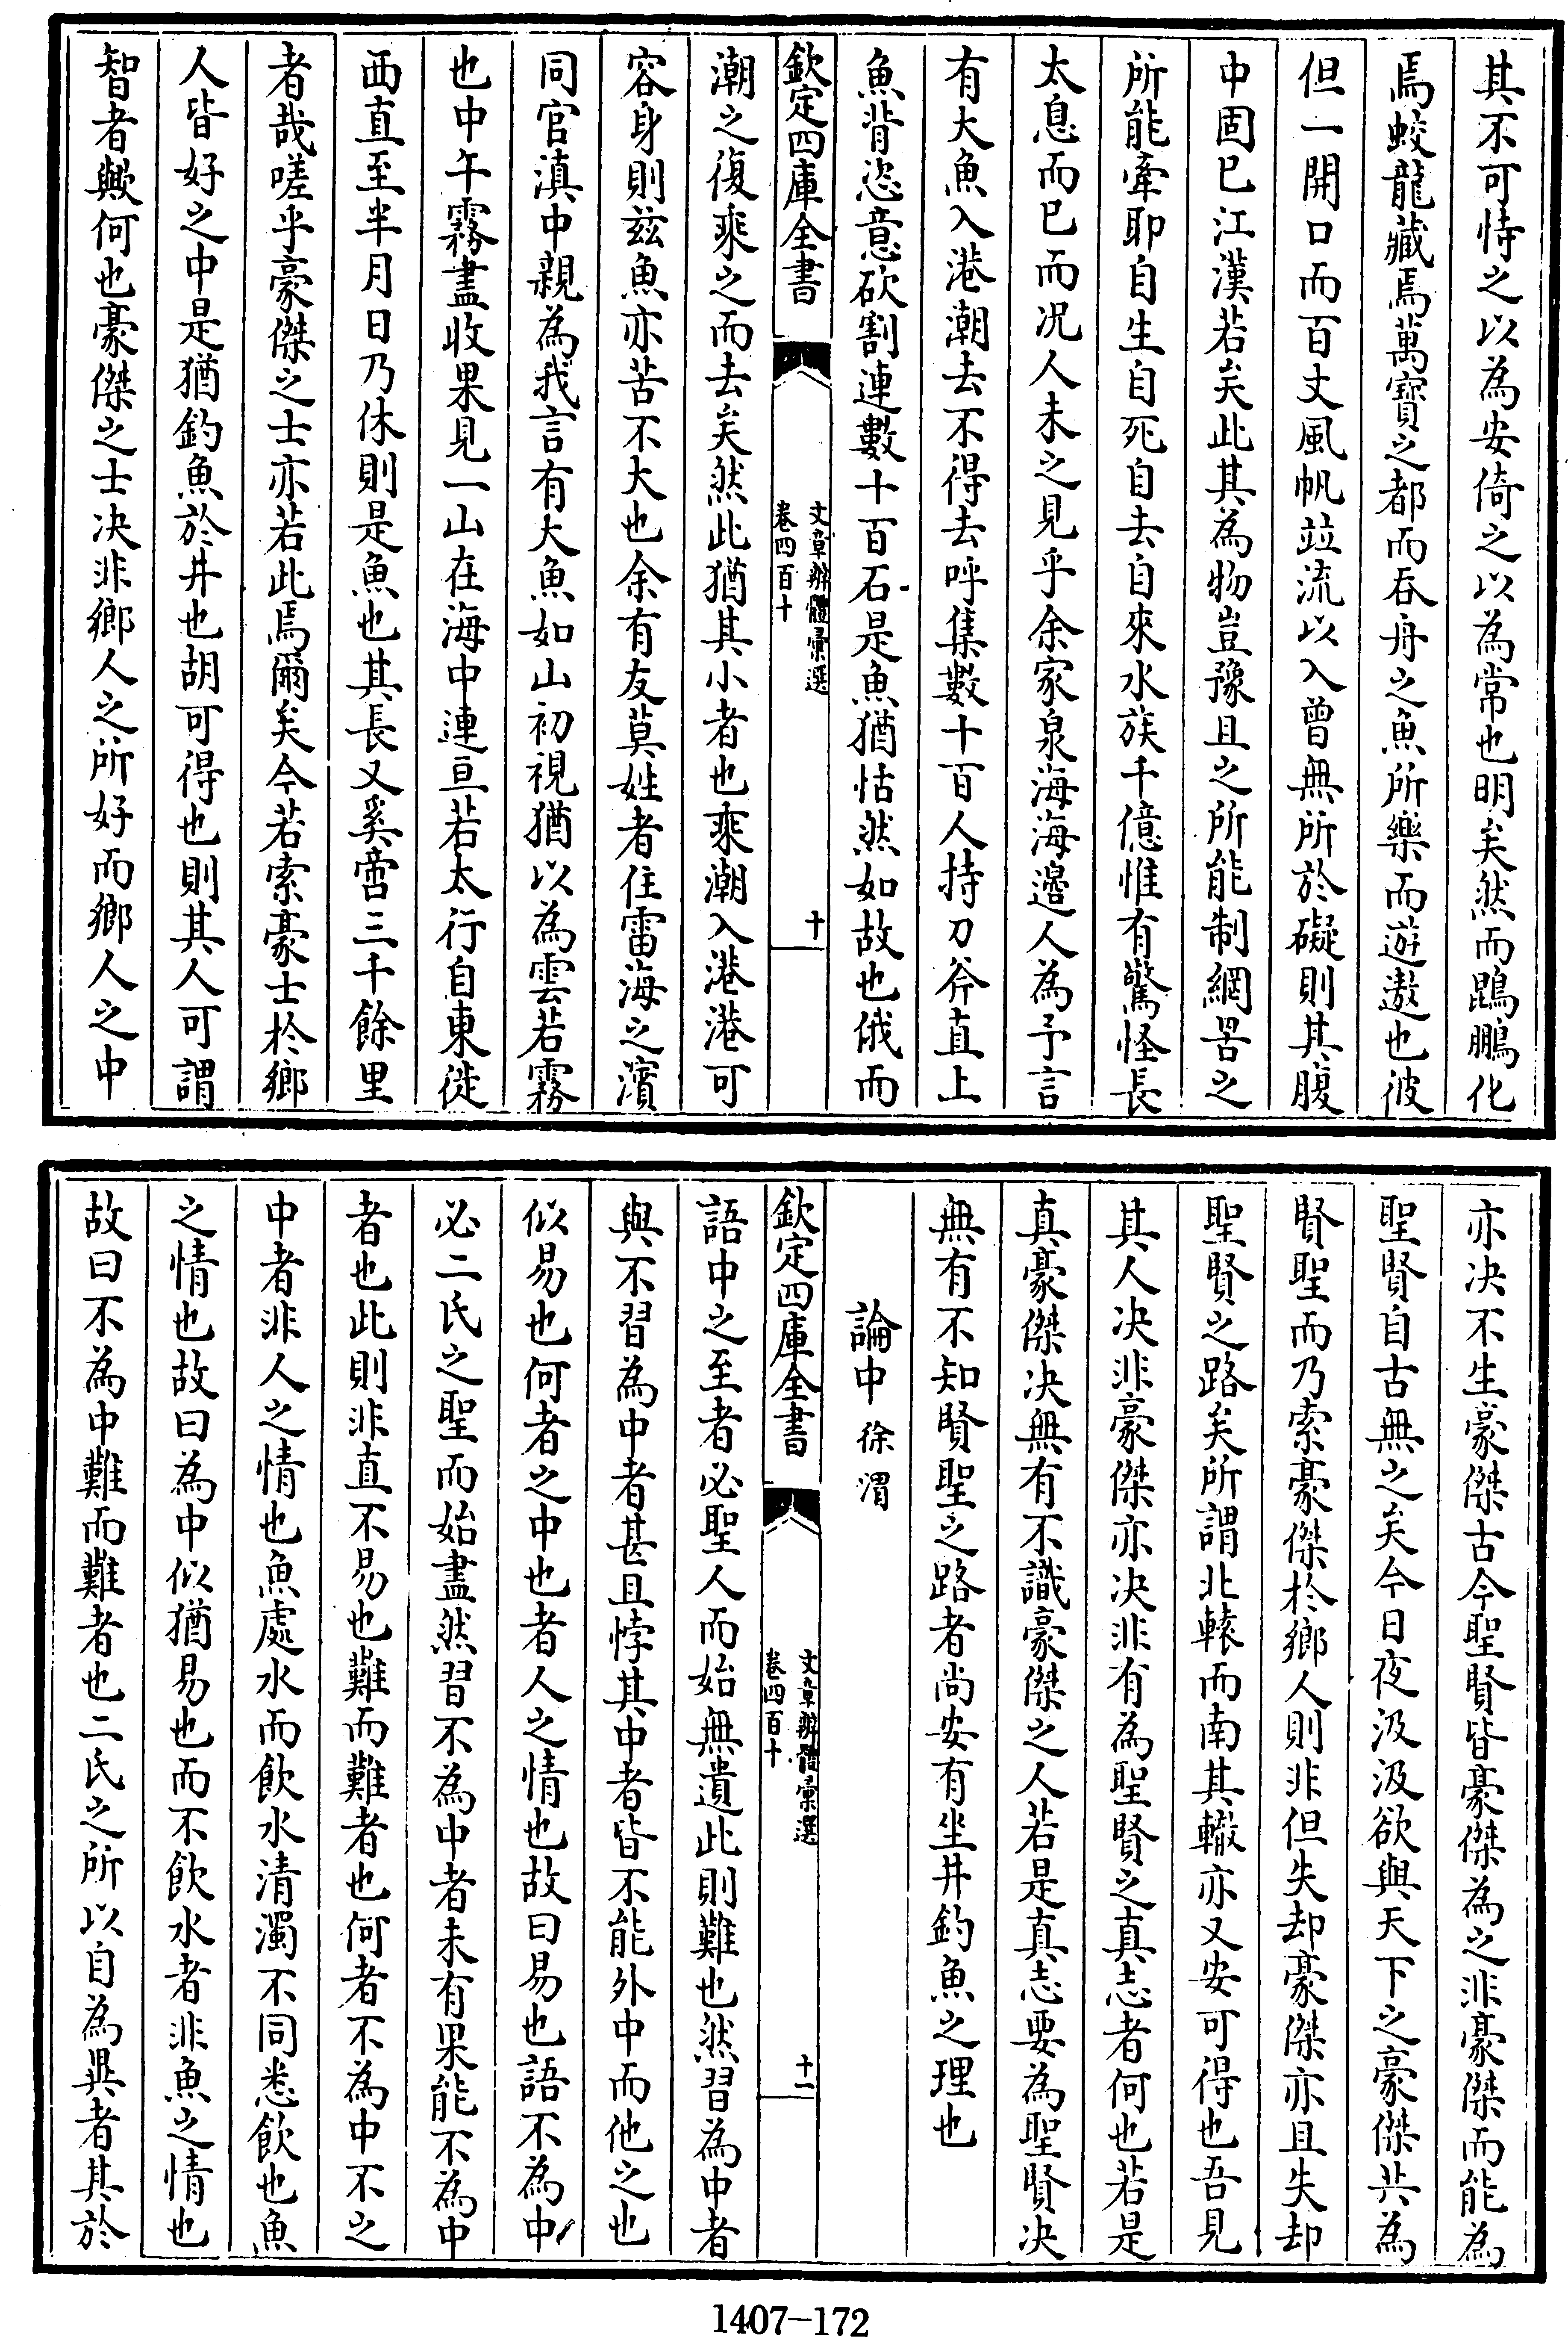 其不可恃之以為安倚之以為常也明矣然而鵾鵬化
焉蛟龍藏焉萬寶之都而吞舟之魚所樂而遊遨也彼
但一開口而百丈風帆竝流以入曾無所於礙則其腹
中固已江漢若矣此其為物豈豫且之所能制網罟之
所能牽耶自生自死自去自來水族千億惟有驚怪長
太息而已而况人未之見乎余家泉海海邉人為予言
有大魚入港潮去不得去呼集數十百人持刀斧直上
魚背恣意砍割連數十百石是魚猶恬然如故也俄而
欽定四庫全書
文章辨體彙選
卷四百十
十
潮之復乘之而去矣然此猶其小者也乘潮入港港可
容身則兹魚亦苦不大也余有友莫姓者住雷海之濱
同官滇中親為我言有大魚如山初視猶以為雲若霧
也中午霧盡收果見一山在海中連亘若太行自東徙
西直至半月日乃休則是魚也其長又奚啻三千餘里
者哉嗟乎豪傑之士亦若此焉爾矣今若索豪士於鄉
人皆好之中是猶釣魚於井也胡可得也則其人可謂
智者歟何也豪傑之士决非鄉人之所好而鄉人之中
亦决不生豪傑古今聖賢皆豪傑為之非豪傑而能為
聖賢自古無之矣今日夜汲汲欲與天下之豪傑共為
賢聖而乃索豪傑於鄉人則非但失却豪傑亦且失却
聖賢之路矣所謂北轅而南其轍亦又安可得也吾見
其人决非豪傑亦决非有為聖賢之真志者何也若是
真豪傑决無有不識豪傑之人若是真志要為聖賢决
無有不知賢聖之路者尚安有坐井釣魚之理也
論中 徐渭
欽定四庫全書
文章辨體彙選
卷四百十
十一
語中之至者必聖人而始無遺此則難也然習為中者
與不習為中者甚且悖其中者皆不能外中而他之也
似易也何者之中也者人之情也故曰易也語不為中
必二氏之聖而始盡然習不為中者未有果能不為中
者也此則非直不易也難而難者也何者不為中不之
中者非人之情也魚處水而飲水清濁不同悉飲也魚
之情也故曰為中似猶易也而不飲水者非魚之情也
故曰不為中難而難者也二氏之所以自為異者其於
1407-172